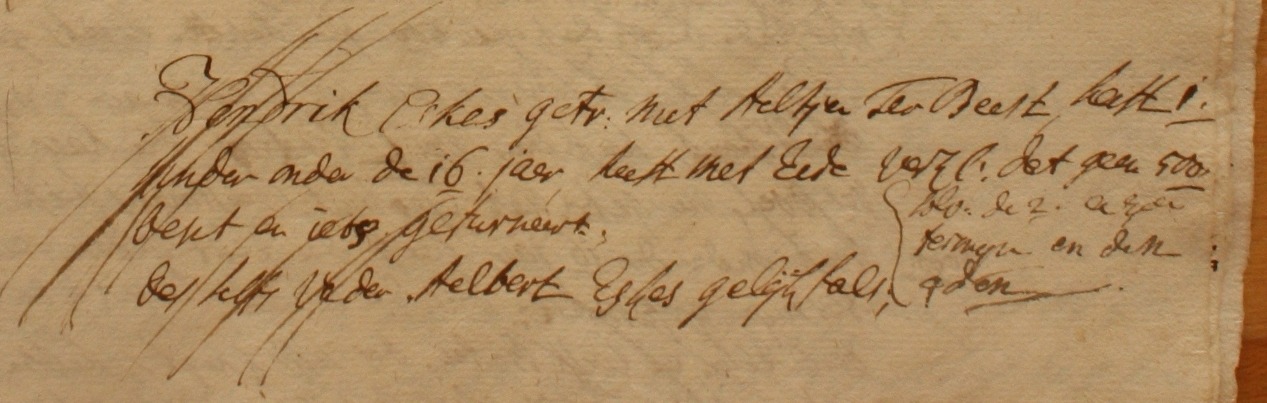 Hendrik Eskes getr. met Aeltjen Ter Beest heeft 1.
kinder onder de 16. jaer, heeft met Eede verkl. dat geen 500.
besit en iets gefurneert.
des selfs vader Aelbert Eskes gelijkfals,
solv. de 2. en
termijn en den